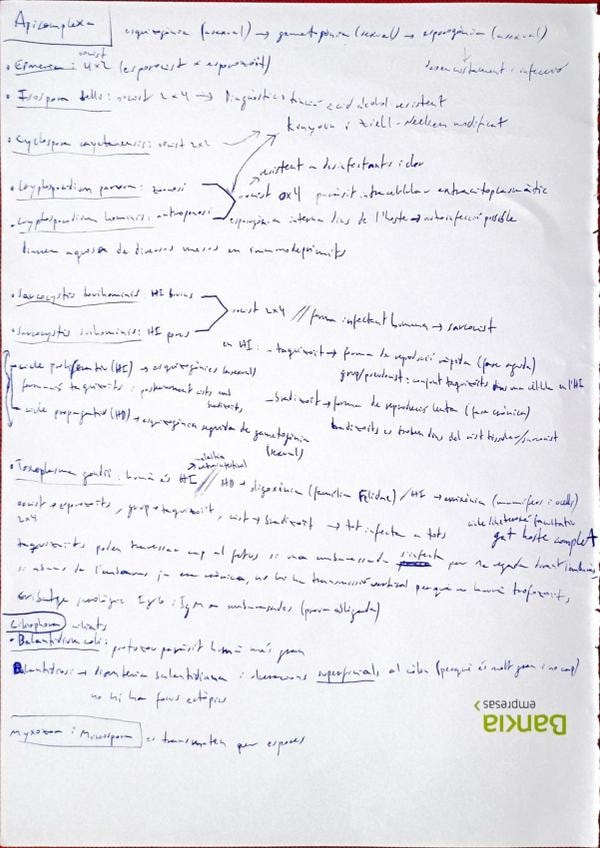 Apicomplexa esquizogònia (asexual) → gametogònia (sexual) → esporogònia (asexual)
desenquistament i infecció
• Eimeria: oocist 4x2 (esporocist x esporozoït)
• Isospora belli: oocist 2x4 → Diagnòstic: tinció àcid alcohol resistent
Kinyoun i Ziehl-Neelsen modificat
• Cyclospora cayetanensis: oocist 2x2
resistent a desinfectants i clor
• Cryptosporidium parvum: zoonosi
oocist 0x4 paràsit intracel·lular extracitoplasmàtic
• Cryptosporidium hominis: antroponosi esporogònia interna dins de l'hoste → autoinfecció possible
Diarrea aquosa de diversos mesos en immunodeprimits
• Sarcocystis bovihominis: HI bovins
oocist 2x4 // forma infectant humana → sarcocist
• Sarcocystis suihominis: HI porcs
en HI: - taquizoit → forma de reproducció ràpida (fase aguda)
cicle proliferatiu (HI) → esquizogònies
grup/pseudocist: conjunt taquizoits dins una cèl·lula en l'HI
formació taquizoits i posteriorment cists amb bradizoits
- bradizoit → forma de reproducció lenta (fase crònica)
cicle propagatiu (HD) → esquizogònia seguida de gametogònia (sexual)
bradizoits es troben dins del cist tissular/sarcocist
• Toxoplasma gondii: humà és HI // HD → (família Felidae) / HI → (mamífers i ocells)
oocist → esporozoits, grup → taquizoit, cist → bradizoit → tot infecta a tots
cicle diheteroxè facultatiu
2x4 gat hoste complet
taquizoits poden travessar cap al fetus si una embarassada s'infecta per 1a vegada durant l'embaràs,
si abans de l'embaràs ja era crònica, no hi ha transmissió vertical perquè no haurà trofozoits,
cribatge serològic IgG i IgM a embarassades (prova obligada)
Ciliophora ciliats
• Balantidium coli: protozou paràsit humà més gran
Balantidiosi → disenteria balantidiana i ulceracions superficials al còlon (perquè és molt gran i no cap)
no hi ha focus ectòpics
Bankia
empresas
Myxozoa i Microspora es transmeten per espores